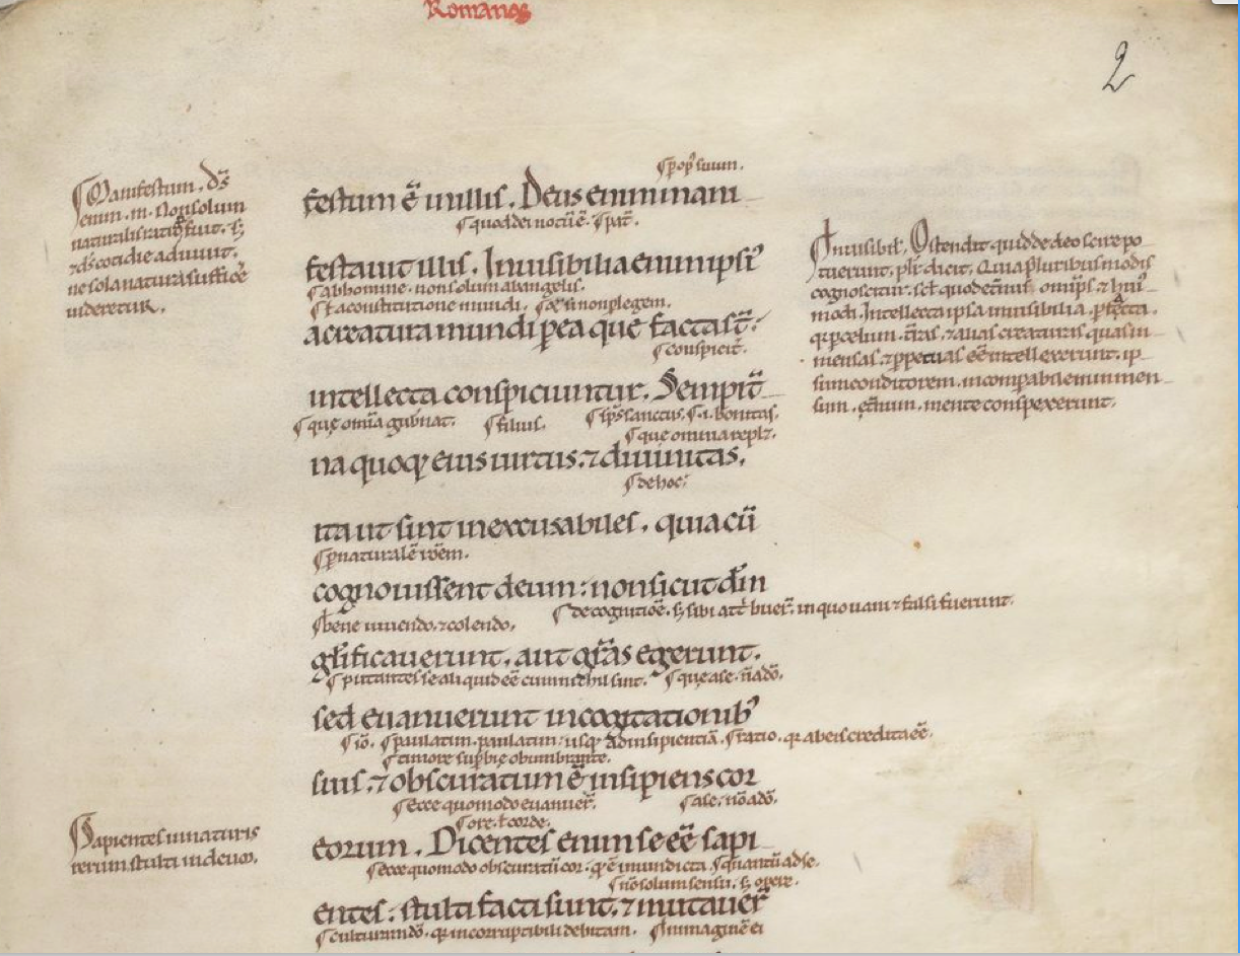 Romanos
2
Manifestum. ds̄
enim. m. Non solum
naturalis ratio ꝓfuit. sꝫ
⁊ ds̄ cotidie adiuuit.
ne sola natura sufficē
uideretur.
ꝓp̄ suum.
festum ē in illis. Deus enim mani
quod de dei notū ē. pat̄.
festauit illis. Inuisibilia enim ipsiꝰ
ab homine. non solum ab angelis.
ł a constitutione mundi. non ꝑ legem.
a creatura mundi ꝑ ea que facta st̄:
conspicit̄.
intellecta conspiciuntur. Sempit̄
que om̄ia gub̄nat. filius. sp̄s sanctus. .i. bonitas.
que omnia replꝫ.
na quoqꝫ eius uirtus. ⁊ diuinitas.
de hoc:
ita ut sint inexcusabiles. quia cū
ꝑ naturalē rōem.
cognouissent deum: non sicut dm̄
bene uiuendo. ⁊ colendo.
de cognitiōe. sꝫ sibi att̄ buer̄. in quo uani ⁊ falsi fuerunt.
gl̄ificauerunt. aut gr̄as egerunt.
putantes se aliquid eē cum nichil sint. que a se. ñ a dō.
sed euanuerunt in cogitationibꝰ
iō. paulatim. paulatim: usqꝫ ad insipientiā. ratio. q̄ ab eis credita eē.
timore suꝑbie obumbrante.
suis. ⁊ obscuratum ē insipiens cor
ecce quomodo euanuer̄. a se. nō a dō.
ore. ł corde.
eorum. Dicentes enim se eē sapi
ecce quomodo obscuratū cor. quantū ad se.
nō solum sensu. sꝫ opere.
entes: stulti facti sunt. ⁊ mutauer̄
culturam dō. q̄ incorruptibili debitam. in imaginē ei
Inuisibil. Ostendit quid de deo scire po
tuerunt. dicit. Quia pluribus modis
cognoscitur. scł quod et̄nus. om̄ips ⁊ huiꝰ
modi. Intellecta ipsa inuisibilia. ꝑ facta.
q̄ ꝑ celum. t̄ras. ⁊ alias creaturas quas in
mensas. ⁊ ꝑpetuas eē intellexerunt. ip
sum conditorem. incomꝑabilem inmen
sum. et̄num. mente conspexerunt.
Sapientes in naturis
rerum stulti in deum.